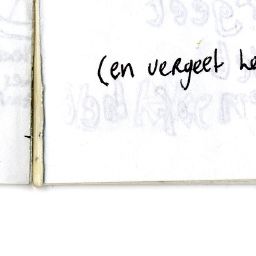 (en vergeet he